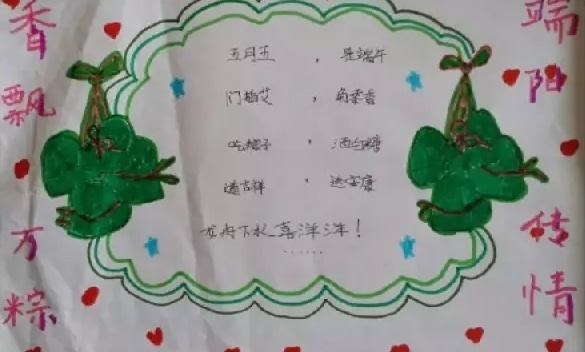 香飘万粽
五月五，是端午
门插艾，角黍香
吃粽子，洒白糖
道吉祥，送安康
龙舟下水喜洋洋！
……
端阳传情